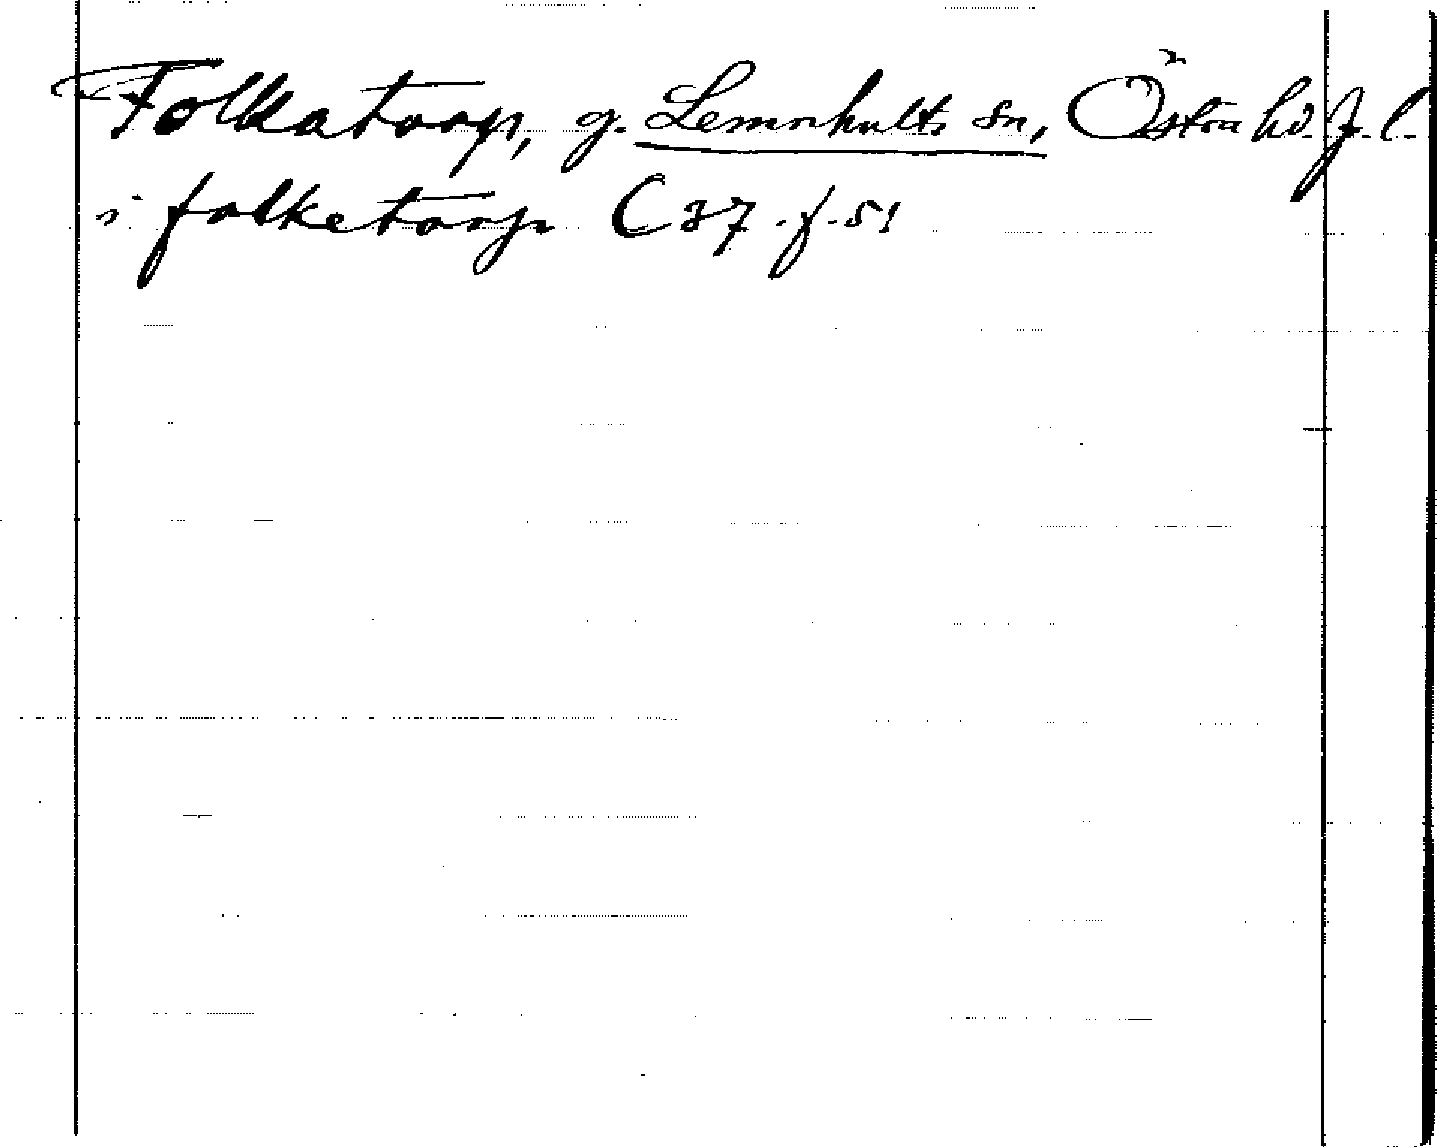 Folkatorp, g. Lemnhults sn, Östra hd. J. l.
i folketorp C 37 f. 51